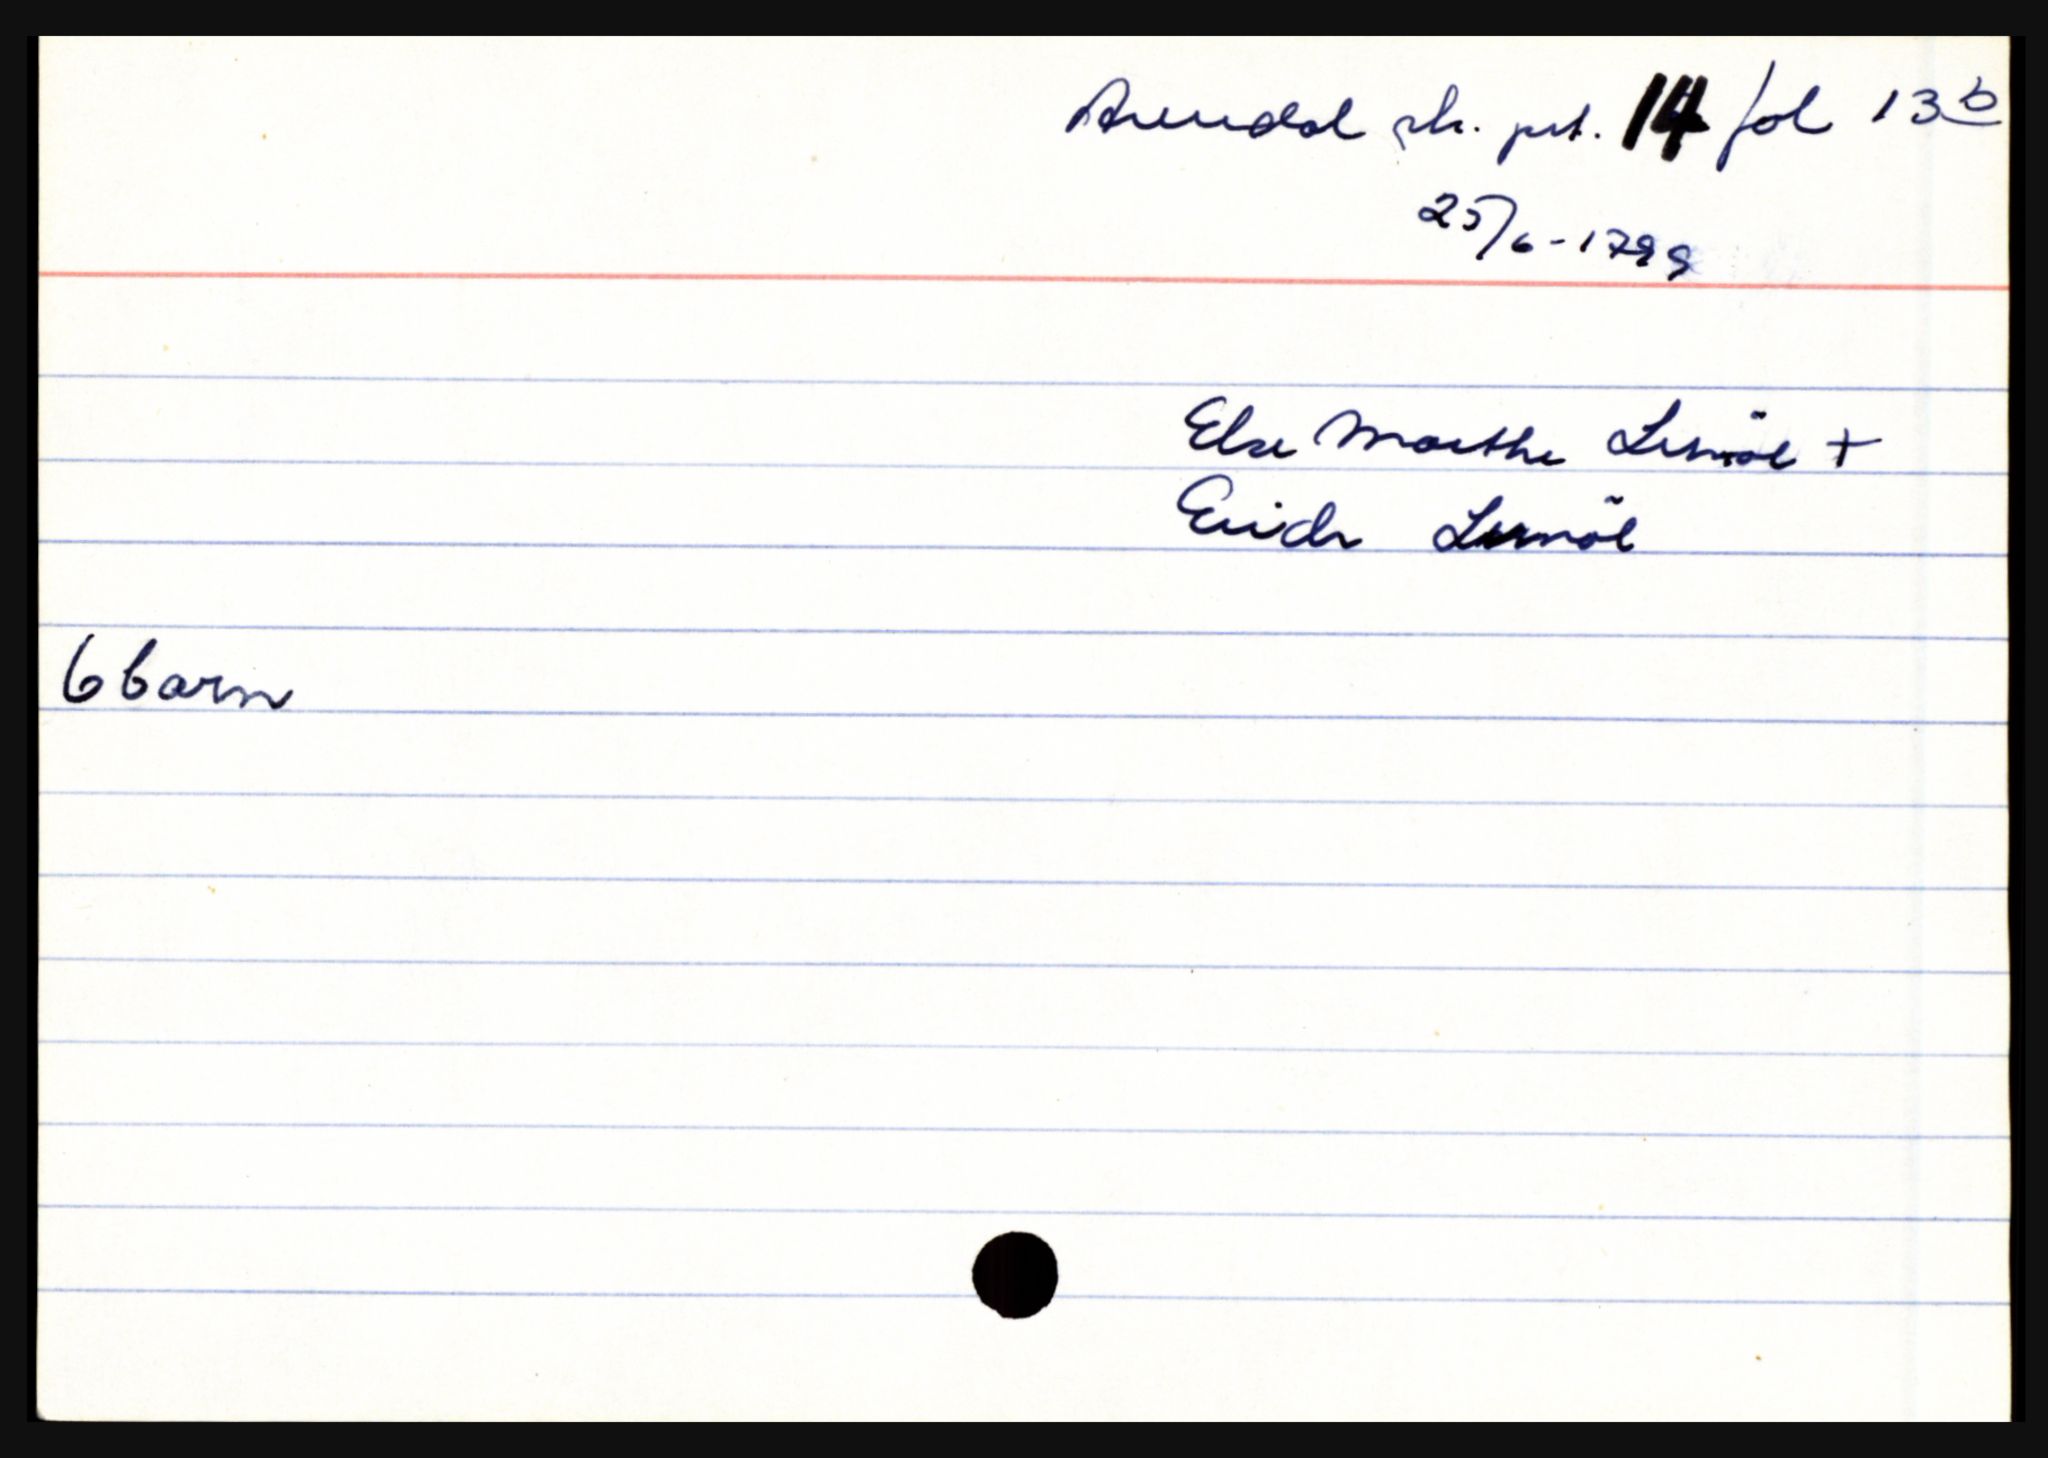 Arendal sk. prt. 14 fol 13b
25/6-1799
Else Marthe Lemöe +
Erich Lemöe
6 barn